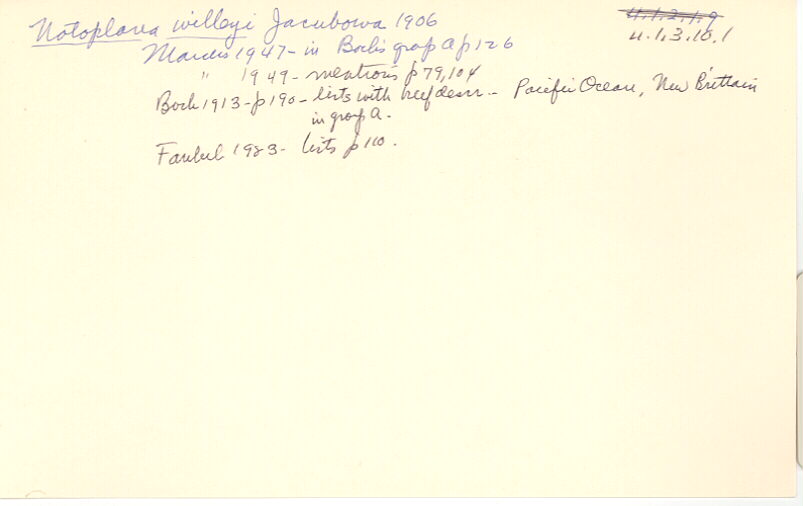 Notoplana willeyi Jacubowa 1906
4.1.2.1.9
4.1.3.10.1
Marcus 1947 - in Bock's group A p 126
" 1949 - mentions p 79, 104
Bock 1913 - p 190 - lists with brief descr - Pacific Ocean, New Brittain
in group A.
Faubel 1983 - lists p 110.